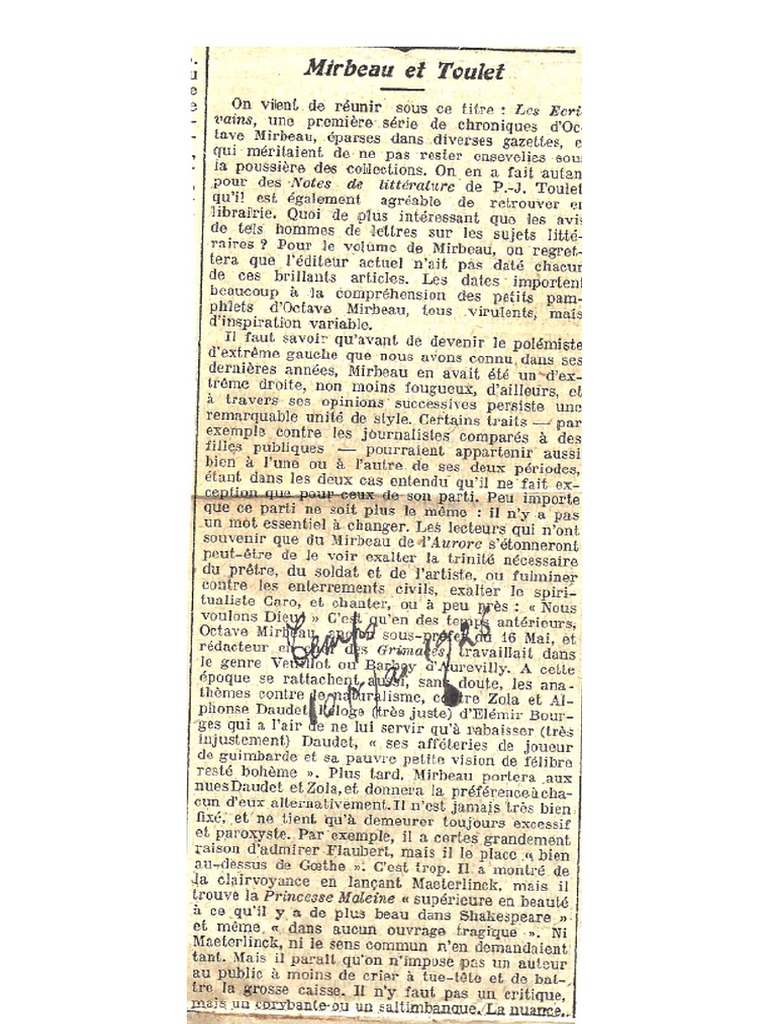 Mirbeau et Toulet
On vient de réunir sous ce titre : Les Ecri
vains, une première série de chroniques d'Oc
tave Mirbeau, éparses dans diverses gazettes, e
qui méritaient de ne pas rester ensevelies sous
la poussière des collections. On en a fait autan
pour des Notes de littérature de P.-J. Toulet
qu'il est également agréable de retrouver en
librairie. Quoi de plus intéressant que les avis
de tels hommes de lettres sur les sujets litté-
raires ? Pour le volume de Mirbeau, on regret-
tera que l'éditeur actuel n'ait pas daté chacun
de ces brillants articles. Les dates importent
beaucoup à la compréhension des petits pam-
phlets d'Octave Mirbeau, tous virulents, mais
d'inspiration variable.
Il faut savoir qu'avant de devenir le polémiste
d'extrême gauche que nous avons connu dans ses
dernières années, Mirbeau en avait été un d'ex-
trême droite, non moins fougueux, d'ailleurs, et
à travers ses opinions successives persiste une
remarquable unité de style. Certains traits — par
exemple contre les journalistes comparés à des
filles publiques — pourraient appartenir aussi
bien à l'une ou à l'autre de ses deux périodes,
étant dans les deux cas entendu qu'il ne fait ex-
ception que pour ceux de son parti. Peu importe
que ce parti ne soit plus le même : il n'y a pas
un mot essentiel à changer. Les lecteurs qui n'ont
souvenir que du Mirbeau de l'Aurore s'étonneront
peut-être de le voir exalter la trinité nécessaire
du prêtre, du soldat et de l'artiste, ou fulminer
contre les enterrements civils, exalter le spiri-
tualiste Caro, et chanter, ou à peu près : « Nous
voulons Dieu ! » C'est qu'en des temps antérieurs,
Octave Mirbeau, ancien sous-préfet du 16 Mai, et
rédacteur en chef des Grimaces, travaillait dans
le genre Veuillot ou Barbey d'Aurevilly. A cette
époque se rattachent aussi, sans doute, les ana-
thèmes contre le naturalisme, contre Zola et Al-
phonse Daudet, l'éloge (très juste) d'Elémir Bour-
ges qui a l'air de ne lui servir qu'à rabaisser (très
injustement) Daudet, « ses afféteries de joueur
de guimbarde et sa pauvre petite vision de félibre
resté bohème ». Plus tard, Mirbeau portera aux
nues Daudet et Zola, et donnera la préférence à cha-
cun d'eux alternativement. Il n'est jamais très bien
fixé, et ne tient qu'à demeurer toujours excessif
et paroxyste. Par exemple, il a certes grandement
raison d'admirer Flaubert, mais il le place « bien
au-dessus de Gœthe ». C'est trop. Il a montré de
la clairvoyance en lançant Maeterlinck, mais il
trouve la Princesse Maleine « supérieure en beauté
à ce qu'il y a de plus beau dans Shakespeare »
et même « dans aucun ouvrage tragique ». Ni
Maeterlinck, ni le sens commun n'en demandaient
tant. Mais il paraît qu'on n'impose pas un auteur
au public à moins de crier à tue-tête et de bat-
tre la grosse caisse. Il n'y faut pas un critique,
mais un corybante ou un saltimbanque. La nuance..
Temps